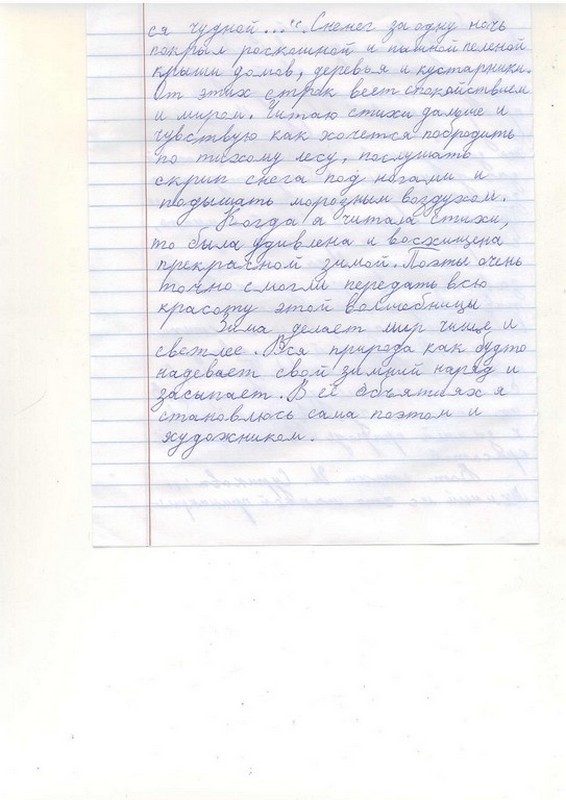 ся чудной...". Снег за одну ночь
покрыл роскошной и пышной пеленой
крыши домов, деревья и кустарники.
От этих строк веет спокойствием
и миром. Читаю стихи дальше и
чувствую как хочется побродить
по тихому лесу, послушать
скрип снега под ногами и
подышать морозным воздухом.
Когда я читала стихи,
то была удивлена и восхищена
прекрасной зимой. Поэты очень
точно смогли передать всю
красоту этой волшебницы
Зима делает мир чище и
светлее. Вся природа как будто
надевает свой зимний наряд и
засыпает. В её объятиях я
становлюсь сама поэтом и
художником.